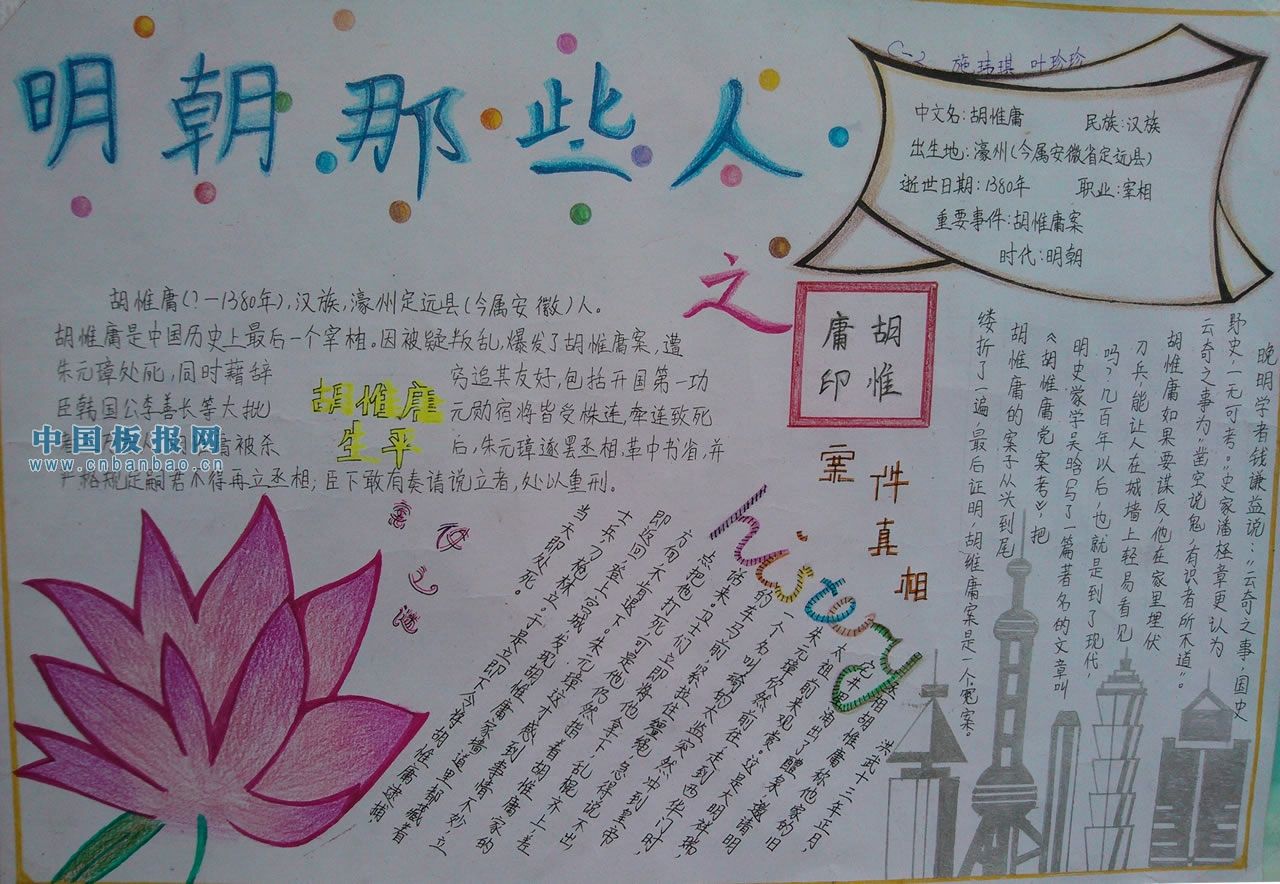 明朝那些人
之
C-2 施玮琪 叶珍珍
中文名:胡惟庸 民族:汉族
出生地:濠州(今属安徽省定远县)
逝世日期:1380年 职业:宰相
重要事件:胡惟庸案
时代:明朝
胡惟庸(?-1380年),汉族,濠州定远县(今属安徽)人。
胡惟庸是中国历史上最后一个宰相。因被疑叛乱,爆发了胡惟庸案,遭
朱元璋处死,同时藉辞 穷追其友好,包括开国第一功
臣韩国公李善长等大批 元勋宿将皆受株连,牵连致死
庸被杀 后,朱元璋遂罢丞相,革中书省,并
严格规定嗣君不得再立丞相;臣下敢有奏请说立者,处以重刑。
胡惟庸
生平
中国板报网
www.cnbanbao.cn
胡惟
庸印
案件真相
history
之谜
洪武十三年正月,
丞相胡惟庸称他家的旧
宅井里涌出了醴泉,邀请明
太祖前来观赏。这是大明祥瑞,
朱元璋欣然前往,走到西华门时,
一个名叫云奇的太监突然冲到皇帝
的车马前,紧拉住缰绳,急得说不出
话来。卫士们立即将他拿下,乱棍齐上,差
点把他打死,可是他仍然指着胡惟庸家的
方向,不肯退下。朱元璋这才感到事情不妙,立
即返回,登上宫城,发现胡惟庸家墙道里都藏着
士兵,刀枪林立。于是立即下令将胡惟庸逮捕,
当天即处死。
晚明学者钱谦益说:"云奇之事,国史
野史,一无可考。"史家潘柽章更认为
云奇之事为"凿空说鬼,有识者所不道"。
胡惟庸如果要谋反,他在家里埋伏
刀兵,能让人在城墙上轻易看见
吗?几百年以后,也就是到了现代,
明史家学吴晗写了一篇著名的文章叫
《胡惟庸党案考》,把
胡惟庸的案子从头到尾
缕折了一遍,最后证明,胡维庸案是一个冤案。